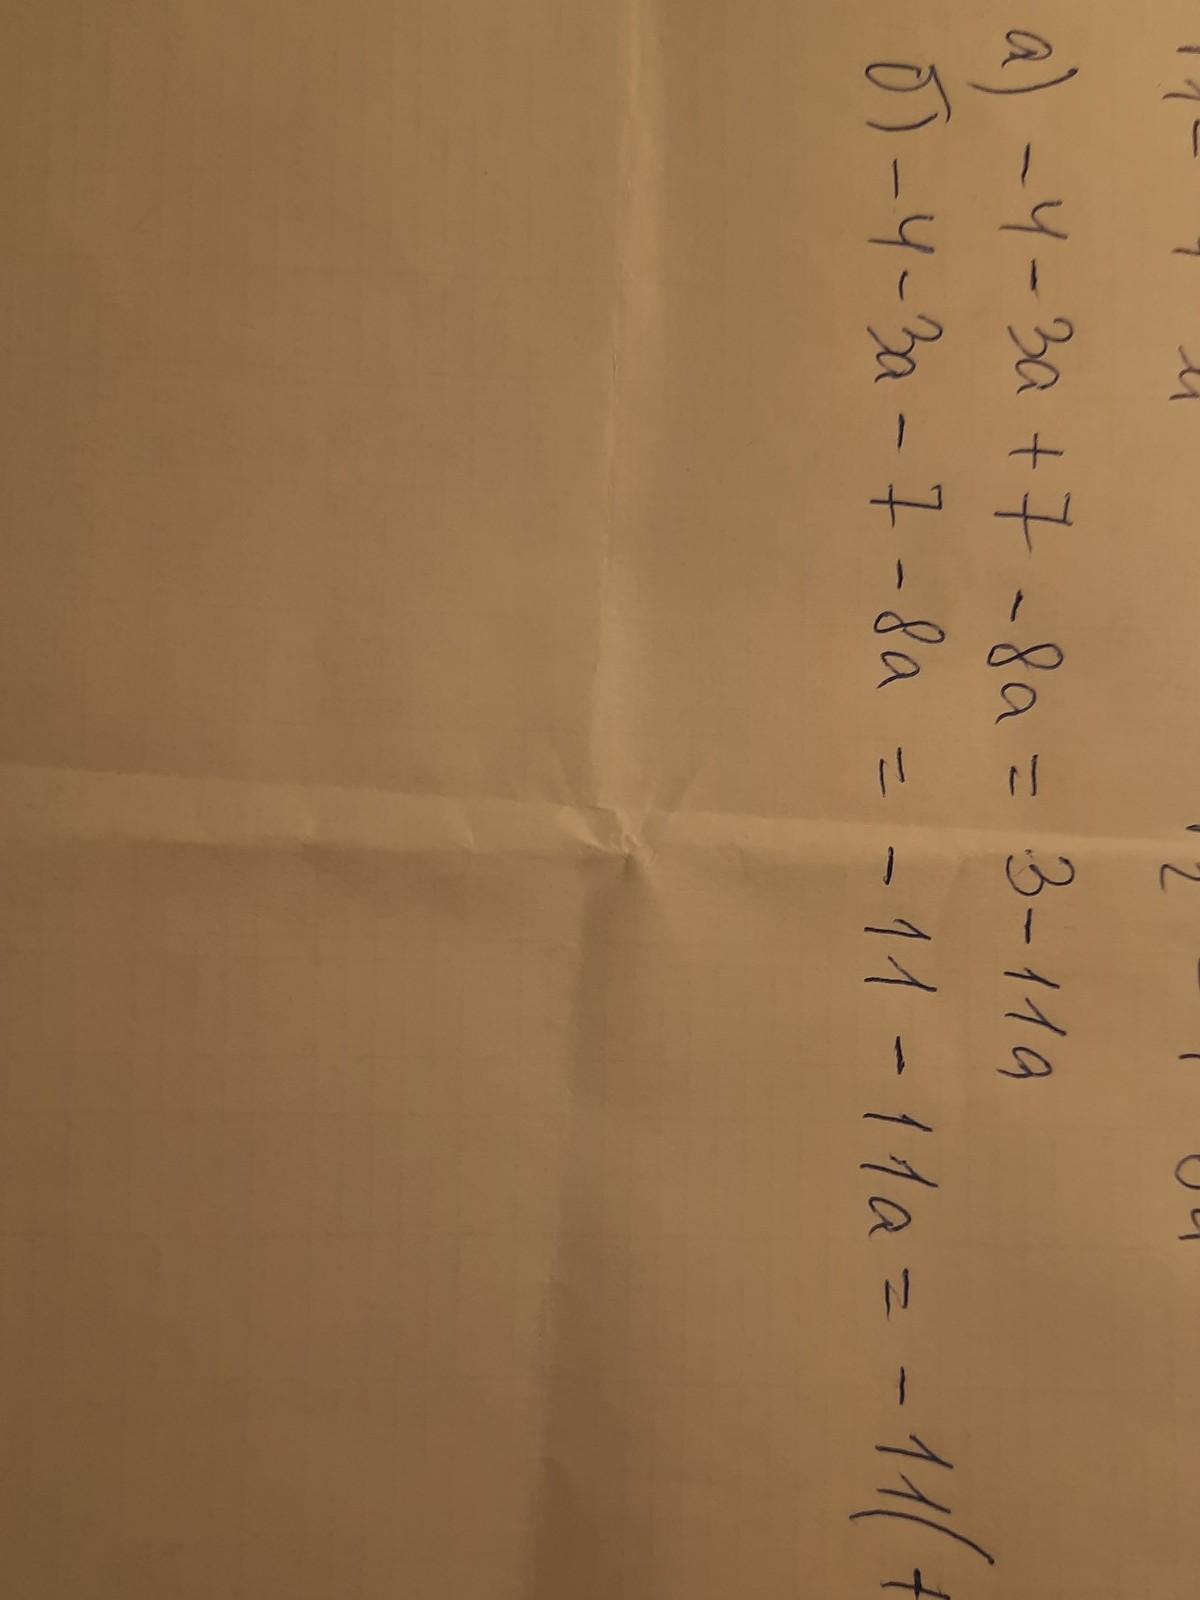 а) -4 - 3a + 7 - 8a = 3 - 11a
б) -4 - 3a - 7 - 8a = -11 - 11a = -11(